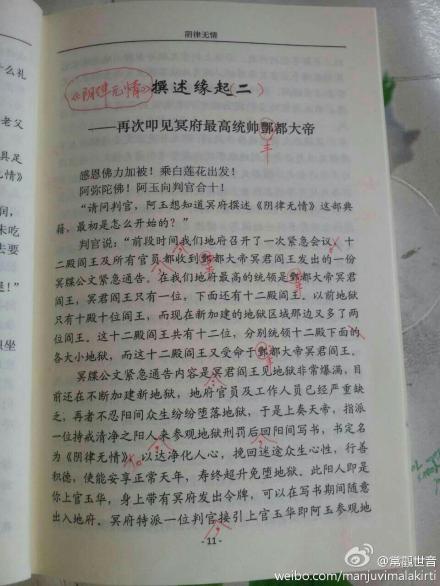 阴律无情
《阴律无情》撰述缘起(二)
——再次叩见冥府最高统帅酆都大帝
丰
感恩佛力加被！乘白莲花出发！
阿弥陀佛！阿玉向判官合十！
“请问判官，阿玉想知道冥府撰述《阴律无情》这部典
籍，最初是怎么开始的？”
判官说：“前段时间我们地府召开了一次紧急会议，十
二殿阎王及所有官员都收到酆都大帝冥君阎王发出的一份
冥牒公文紧急通告。在我们地府最高的统领是酆都大帝冥君
阎王，冥君阎王只有一位，下面还有十二殿阎王。以前地狱
只有十殿十位阎王，而现在新加建的地狱区域那边又多了两
位阎王。这十二殿阎王共有十二位，分别统领十二殿下面的
各大小地狱，而这十二殿阎王又受命于酆都大帝冥君阎王。
冥牒公文紧急通告内容是冥君阎王见地狱非常爆满，目
前还在不断加建新地狱，地府官员及工作人员已经严重缺
乏，再者不忍阳间众生纷纷堕落地狱，于是上奏天帝，指派
一位持戒清净之阳人来参观地狱刑罚后回阳间写书，书定名
为《阴律无情》，以达净化人心，挽回迷途众生心性，行善
积德，使能安享正常天年，寿终超升免堕地狱。此阳人即是
你上官玉华，身上带有冥府发出令牌，可以在写书期间随意
出入地府。冥府特派一位判官接引上官玉华即阿玉参观地
- 11 -
么礼
老父
具足
情》
间，
未吃
去要
是！”
以坐
@常觀世音
weibo.com/manjuvimalakirti